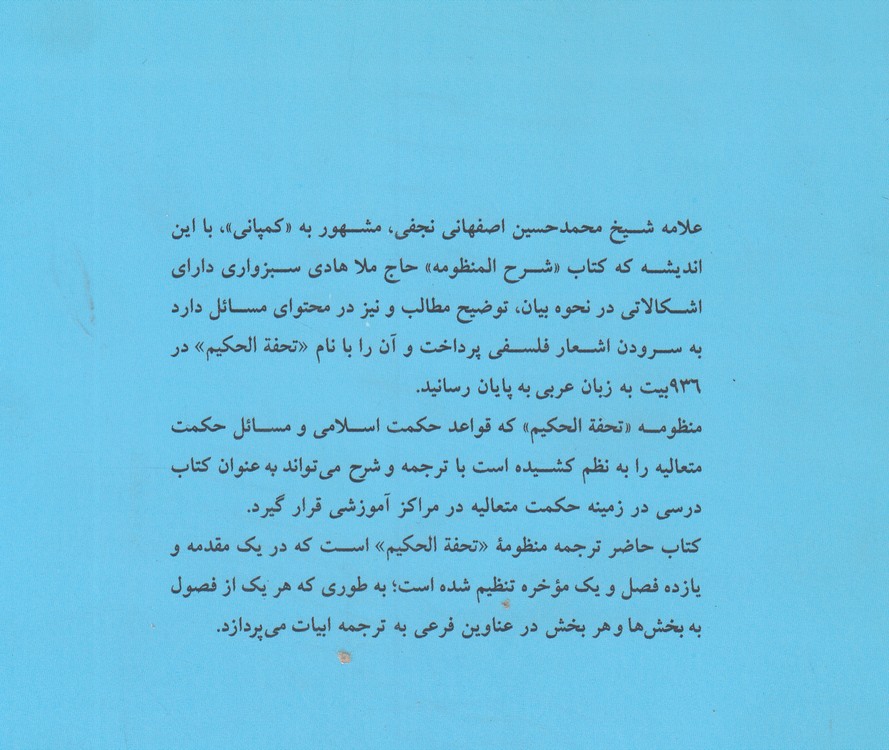 علامه شیخ محمدحسین اصفهانی نجفی، مشهور به «کمپانی»، با این
اندیشه که کتاب «شرح المنظومه» حاج ملا هادی سبزواری دارای
اشکالاتی در نحوه بیان، توضیح مطالب و نیز در محتوای مسائل دارد
به سرودن اشعار فلسفی پرداخت و آن را با نام «تحفة الحکیم» در
۹۳۶بیت به زبان عربی به پایان رسانید.
منظومه «تحفة الحکیم» که قواعد حکمت اسلامی و مسائل حکمت
متعالیه را به نظم کشیده است با ترجمه و شرح می‌تواند به عنوان کتاب
درسی در زمینه حکمت متعالیه در مراکز آموزشی قرار گیرد.
کتاب حاضر ترجمه منظومهٔ «تحفة الحکیم» است که در یک مقدمه و
یازده فصل و یک مؤخره تنظیم شده است؛ به طوری که هر یک از فصول
به بخش‌ها و هر بخش در عناوین فرعی به ترجمه ابیات می‌پردازد.